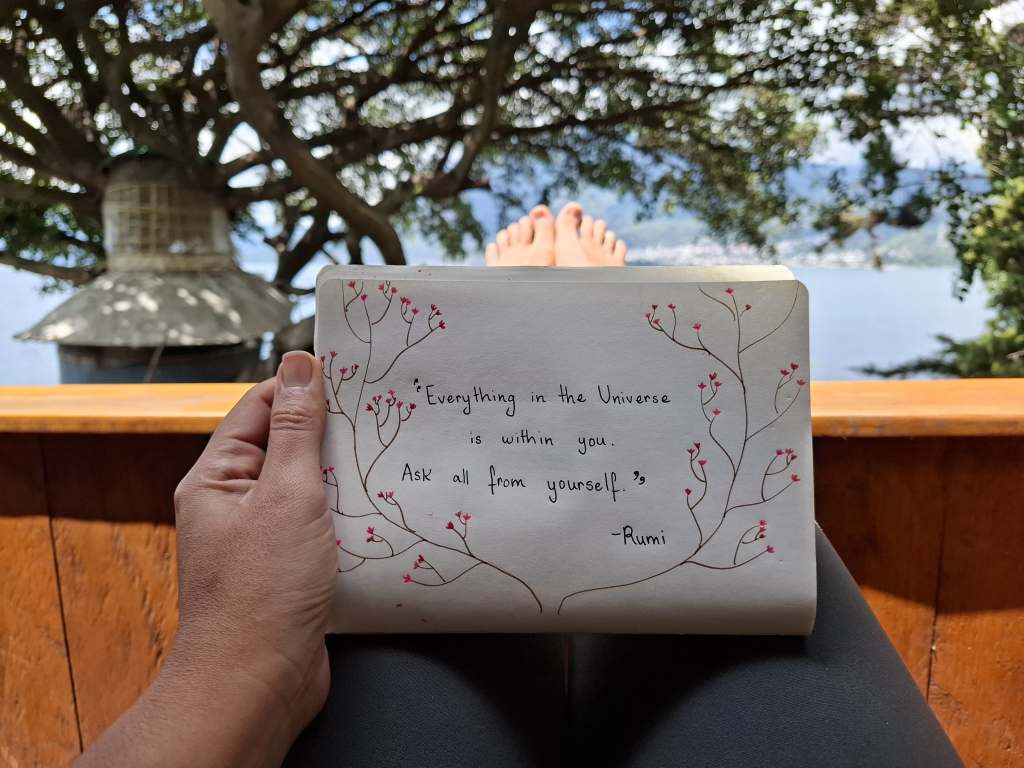 “Everything in the Universe
is within you.
Ask all from yourself.”
-Rumi